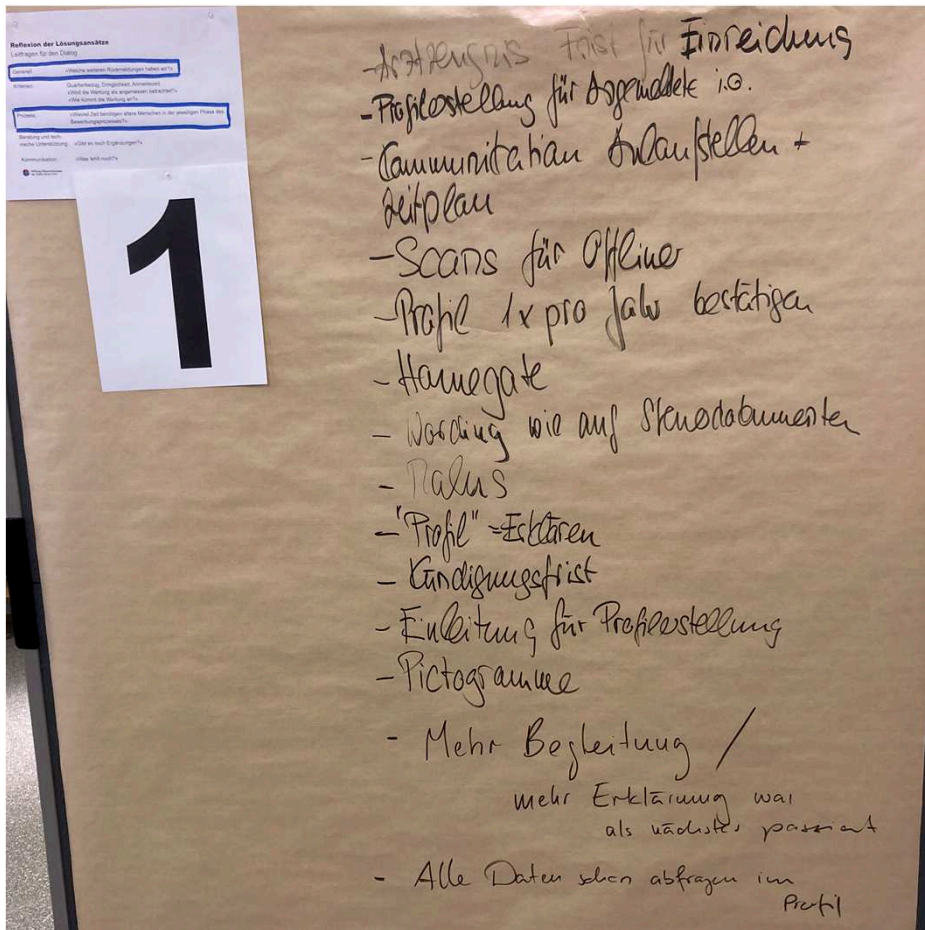 Reflexion der Lösungsansätze
Leitfragen für den Dialog
Generell: «Welche weiteren Rückmeldungen haben wir?»
Kriterien: Quartierbezug, Dringlichkeit, Anmeldezeit
«Wird die Wertung als angemessen betrachtet?»
«Wie kommt die Wertung an?»
Prozess: «Wieviel Zeit benötigen ältere Menschen in der jeweiligen Phase des
Bewerbungsprozesses?»
Beratung und tech-
nische Unterstützung: «Gibt es noch Ergänzungen?»
Kommunikation: «Was fehlt noch?»
1
- Arztzeugnis Frist für Einreichung
- Profilerstellung für Angemeldete i.O.
- Communikation Anlaufstellen +
Zeitplan
- Scans für Offliner
- Profil 1x pro Jahr bestätigen
- Homegate
- Wording wie auf Steuerdokumenten
- Malus
- "Profil" = Erklären
- Kündigungsfrist
- Einleitung für Profilerstellung
- Pictogramme
- Mehr Begleitung /
mehr Erklärung was
als nächstes passiert
- Alle Daten schon abfragen im
Profil